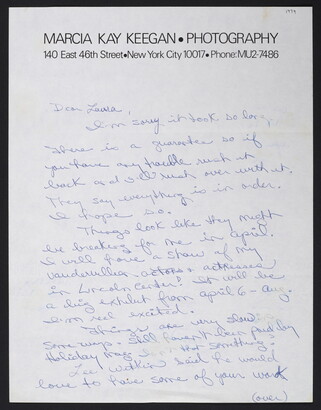 1974
MARCIA KAY KEEGAN • PHOTOGRAPHY
140 East 46th Street • New York City 10017 • Phone: MU2-7486
Dear Laura,
I'm sorry it took so long.
There is a guarantee so if
you have any trouble rush it
back and I'll rush over with it.
They say everything is in order.
I hope so.
Things look like they might
be breaking for me in April.
I will have a show of my
vaudevillian actors + actresses
in Lincoln Center! It will be
a big exhibit from April 6 - Aug.
I'm real excited.
Things are very slow
some ways. Still haven't been paid by
Holiday mag. Isn't that something?
Lee Witkin said he would
love to have some of your work
(over)